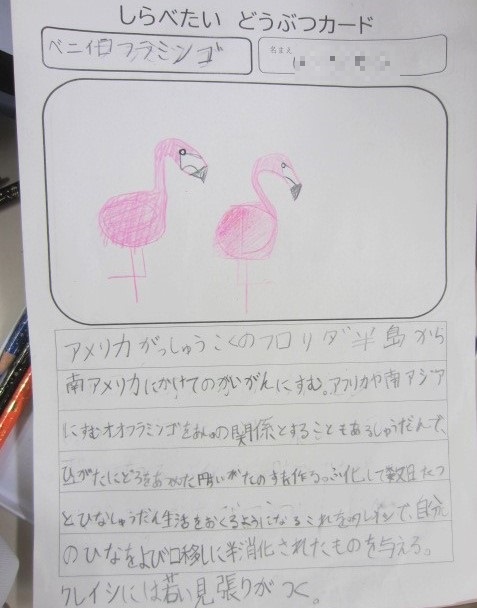 しらべたい どうぶつカード
ベニイロフラミンゴ
名まえ
アメリカがっしゅうこくのフロリダ半島から
南アメリカにかけてのかいがんにすむ。アフリカや南アジア
にすむオオフラミンゴを の関係とすることもあるしゅうだんで、
ひがたにどろをあつめた がたのすを作る。ふ化して数日たつ
とひなしゅうだん生活をおくるようになるこれをクレイシで、自分
のひなをよび口移しに半消化されたものを与える。
クレイシには若い見張りがつく。